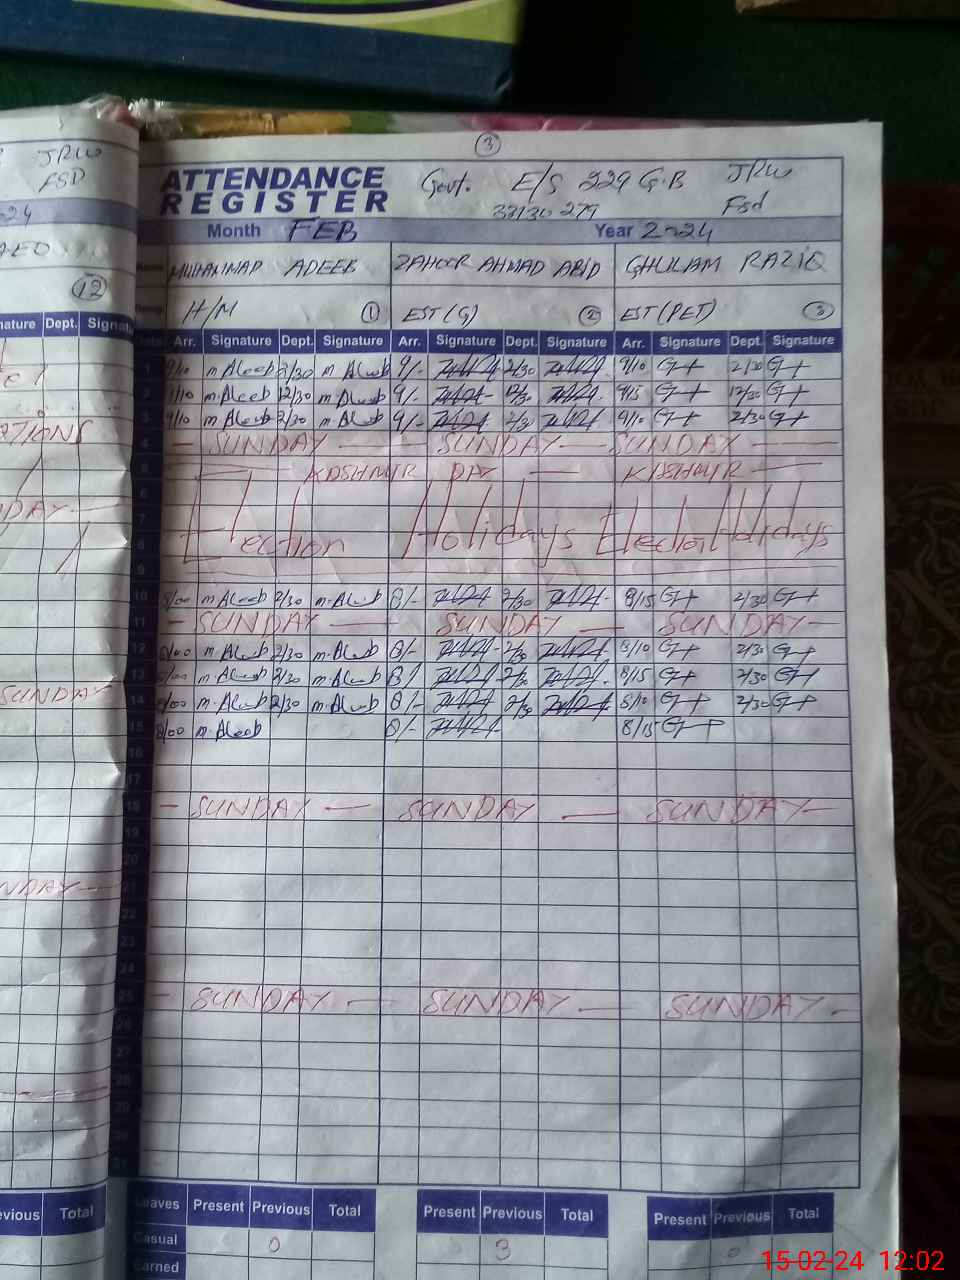 3
ATTENDANCE Govt. E/S 229 G.B JRW
REGISTER 33130279 Fsd
Month FEB Year 2024
MUHAMMAD ADEEB ZAHOOR AHMAD ABID GHULAM RAZIQ
H/M 1 EST(G) 2 EST(PET) 3
Arr. Signature Dept. Signature Arr. Signature Dept. Signature Arr. Signature Dept. Signature
1 9/10 m.Aleeb 2/30 m.Aleeb 9/- 2/30 9/10 2/30
2 m.Aleeb 12/30 m.Aleeb 9/- 12/30 9/15 12/30
3 9/10 m.Aleeb 2/30 m.Aleeb 9/- 2/30 9/10 2/30
4 - SUNDAY - SUNDAY - SUNDAY -
5 KASHMIR DAY - KASHMIR -
6
7
8 Election Holidays Election Holidays
9
10 8/00 m.Aleeb 2/30 m.Aleeb 8/- 2/30 8/15 2/30
11 - SUNDAY - SUNDAY - SUNDAY -
12 8/00 m.Aleeb 2/30 m.Aleeb 8/- 2/30 8/10 2/30
13 8/00 m.Aleeb 2/30 m.Aleeb 8/- 2/30 8/15 2/30
14 8/00 m.Aleeb 2/30 m.Aleeb 8/- 2/30 8/10 2/30
15 8/00 m.Aleeb 8/- 8/15
16
17
18 - SUNDAY - SUNDAY - SUNDAY -
19
20
21
22
23
24
25 - SUNDAY - SUNDAY - SUNDAY -
26
27
28
29
30
31
Leaves Present Previous Total Present Previous Total Present Previous Total
Casual 0 3 0
Earned
JRW
FSD
12
Dept.
SUNDAY
Total
15-02-24 12:02